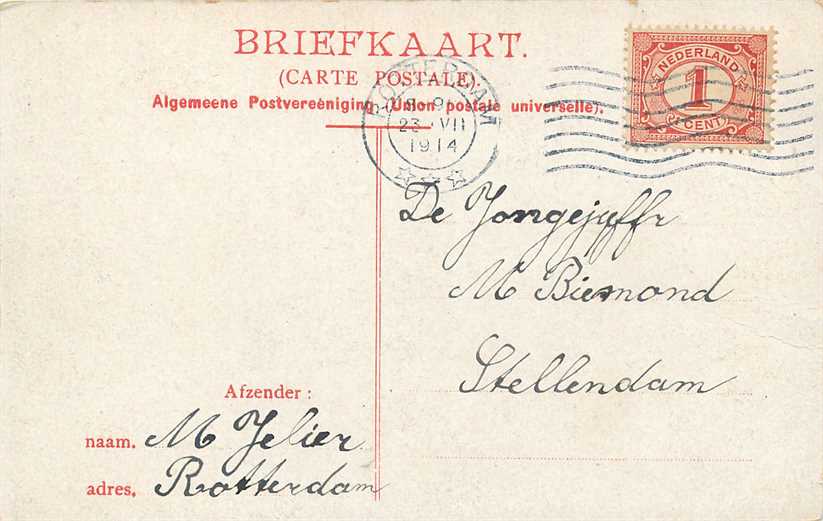 BRIEFKAART.
(CARTE POSTALE)
Algemeene Postvereeniging (Union postale universelle).
ROTTERDAM
23 VII
1914
NEDERLAND
1
(1 CENT)
De Jongejuffr
M Biemond
Stellendam
Afzender :
naam. M Jelier
adres. Rotterdam